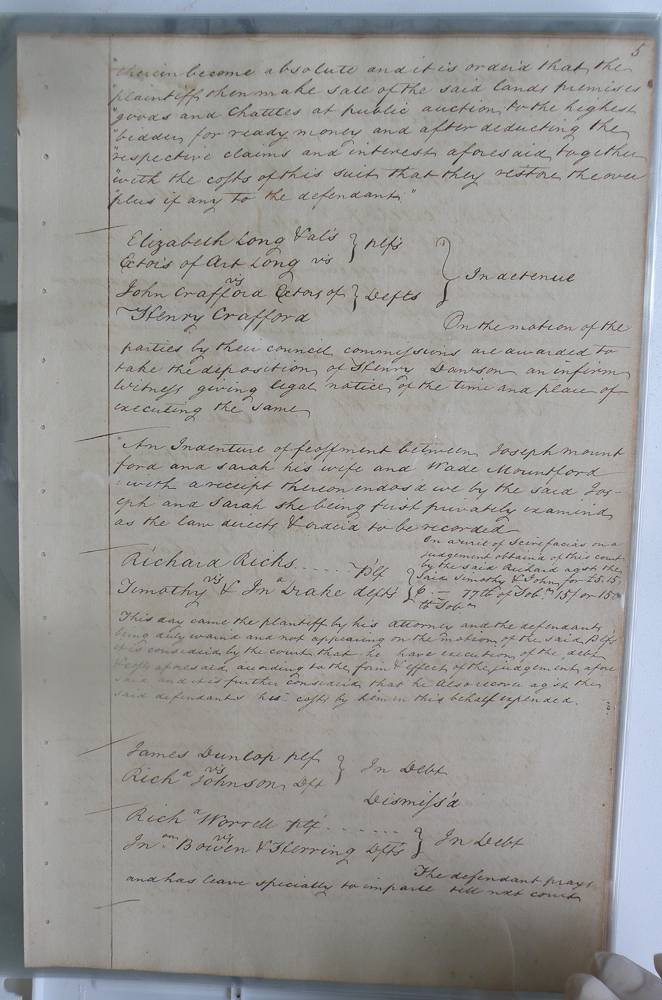 5
"therein become absolute and it is orderd that the
"plaintiff then make sale of the said lands premises
"goods and Chatles at public auction to the highest
"bidder for ready money and after deducting the
"respective claims and interest aforesaid together
"with the costs of this suit that they restore the over
"plus if any to the defendant"
Elizabeth Long & al's
Ector's of Art Long vs } plf's
vs
John Crafford Ectors of } Defts } In detenue
Henry Crafford
On the motion of the
parties by their council commissions are awarded to
take the deposition of Henry Dawson an infirm
Witness giving legal notice of the time and place of
executing the same
An Indenture of feoffment between Joseph Mount
ford and Sarah his wife and Wade Mountford
with a receipt thereon endosd we by the said Jos-
eph and Sarah she being first privately examind
as the law directs & orderd to be recorded
Richard Ricks ...... Plf
vs
Timothy & Jna Drake defts }
On a writ of Scirefacias on a
judgement obtaind of this court
by the said Richard agst the
said Timothy & John for £5.15.
6. — 77 th of Tobo. 15/ or 150
th Tobo
This day came the plantiff by his attorney and the defendants
being duly warnd and not appearing on the motion of the said Plf
it is considerd by the court that he have execution of the debt
& costs aforesaid acording to the form & effect of the judgement afore
said and it is further considerd that he also recover agst the
said defendants his costs by him in this behalf expended.
James Dunlop plf
vs } In Debt
Richa Johnson Dft
Dismiss'd
Richa Worrell plf ......
vs } In Debt
Jn. Bowen & Herring Dfts
The defendant prays
and has leave specially to imparle till next court